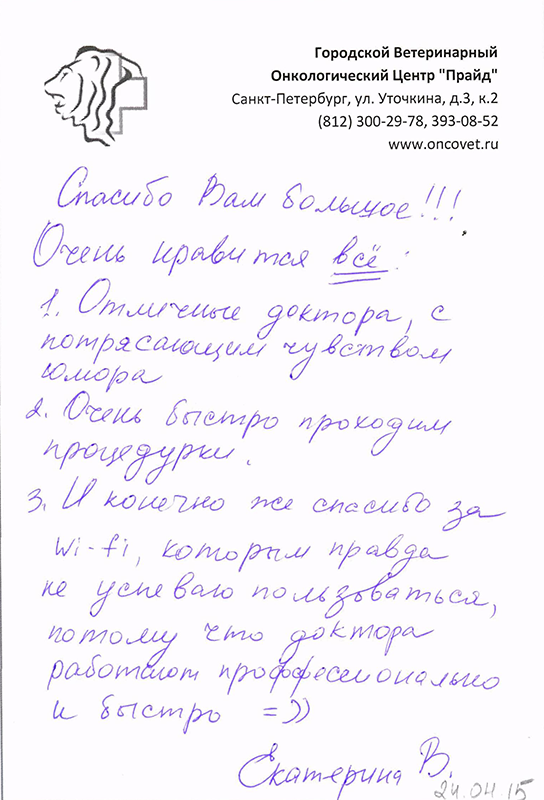 Городской Ветеринарный
Онкологический Центр "Прайд"
Санкт-Петербург, ул. Уточкина, д.3, к.2
(812) 300-29-78, 393-08-52
www.oncovet.ru
Спасибо Вам большое!!!
Очень нравится всё:
1. Отличные доктора, с
потрясающим чувством
юмора
2. Очень быстро проходим
процедурки.
3. И конечно же спасибо за
Wi-fi, которым правда
не успеваю пользоваться,
потому что доктора
работают проффессионально
и быстро =))
Екатерина В.
24.04.15